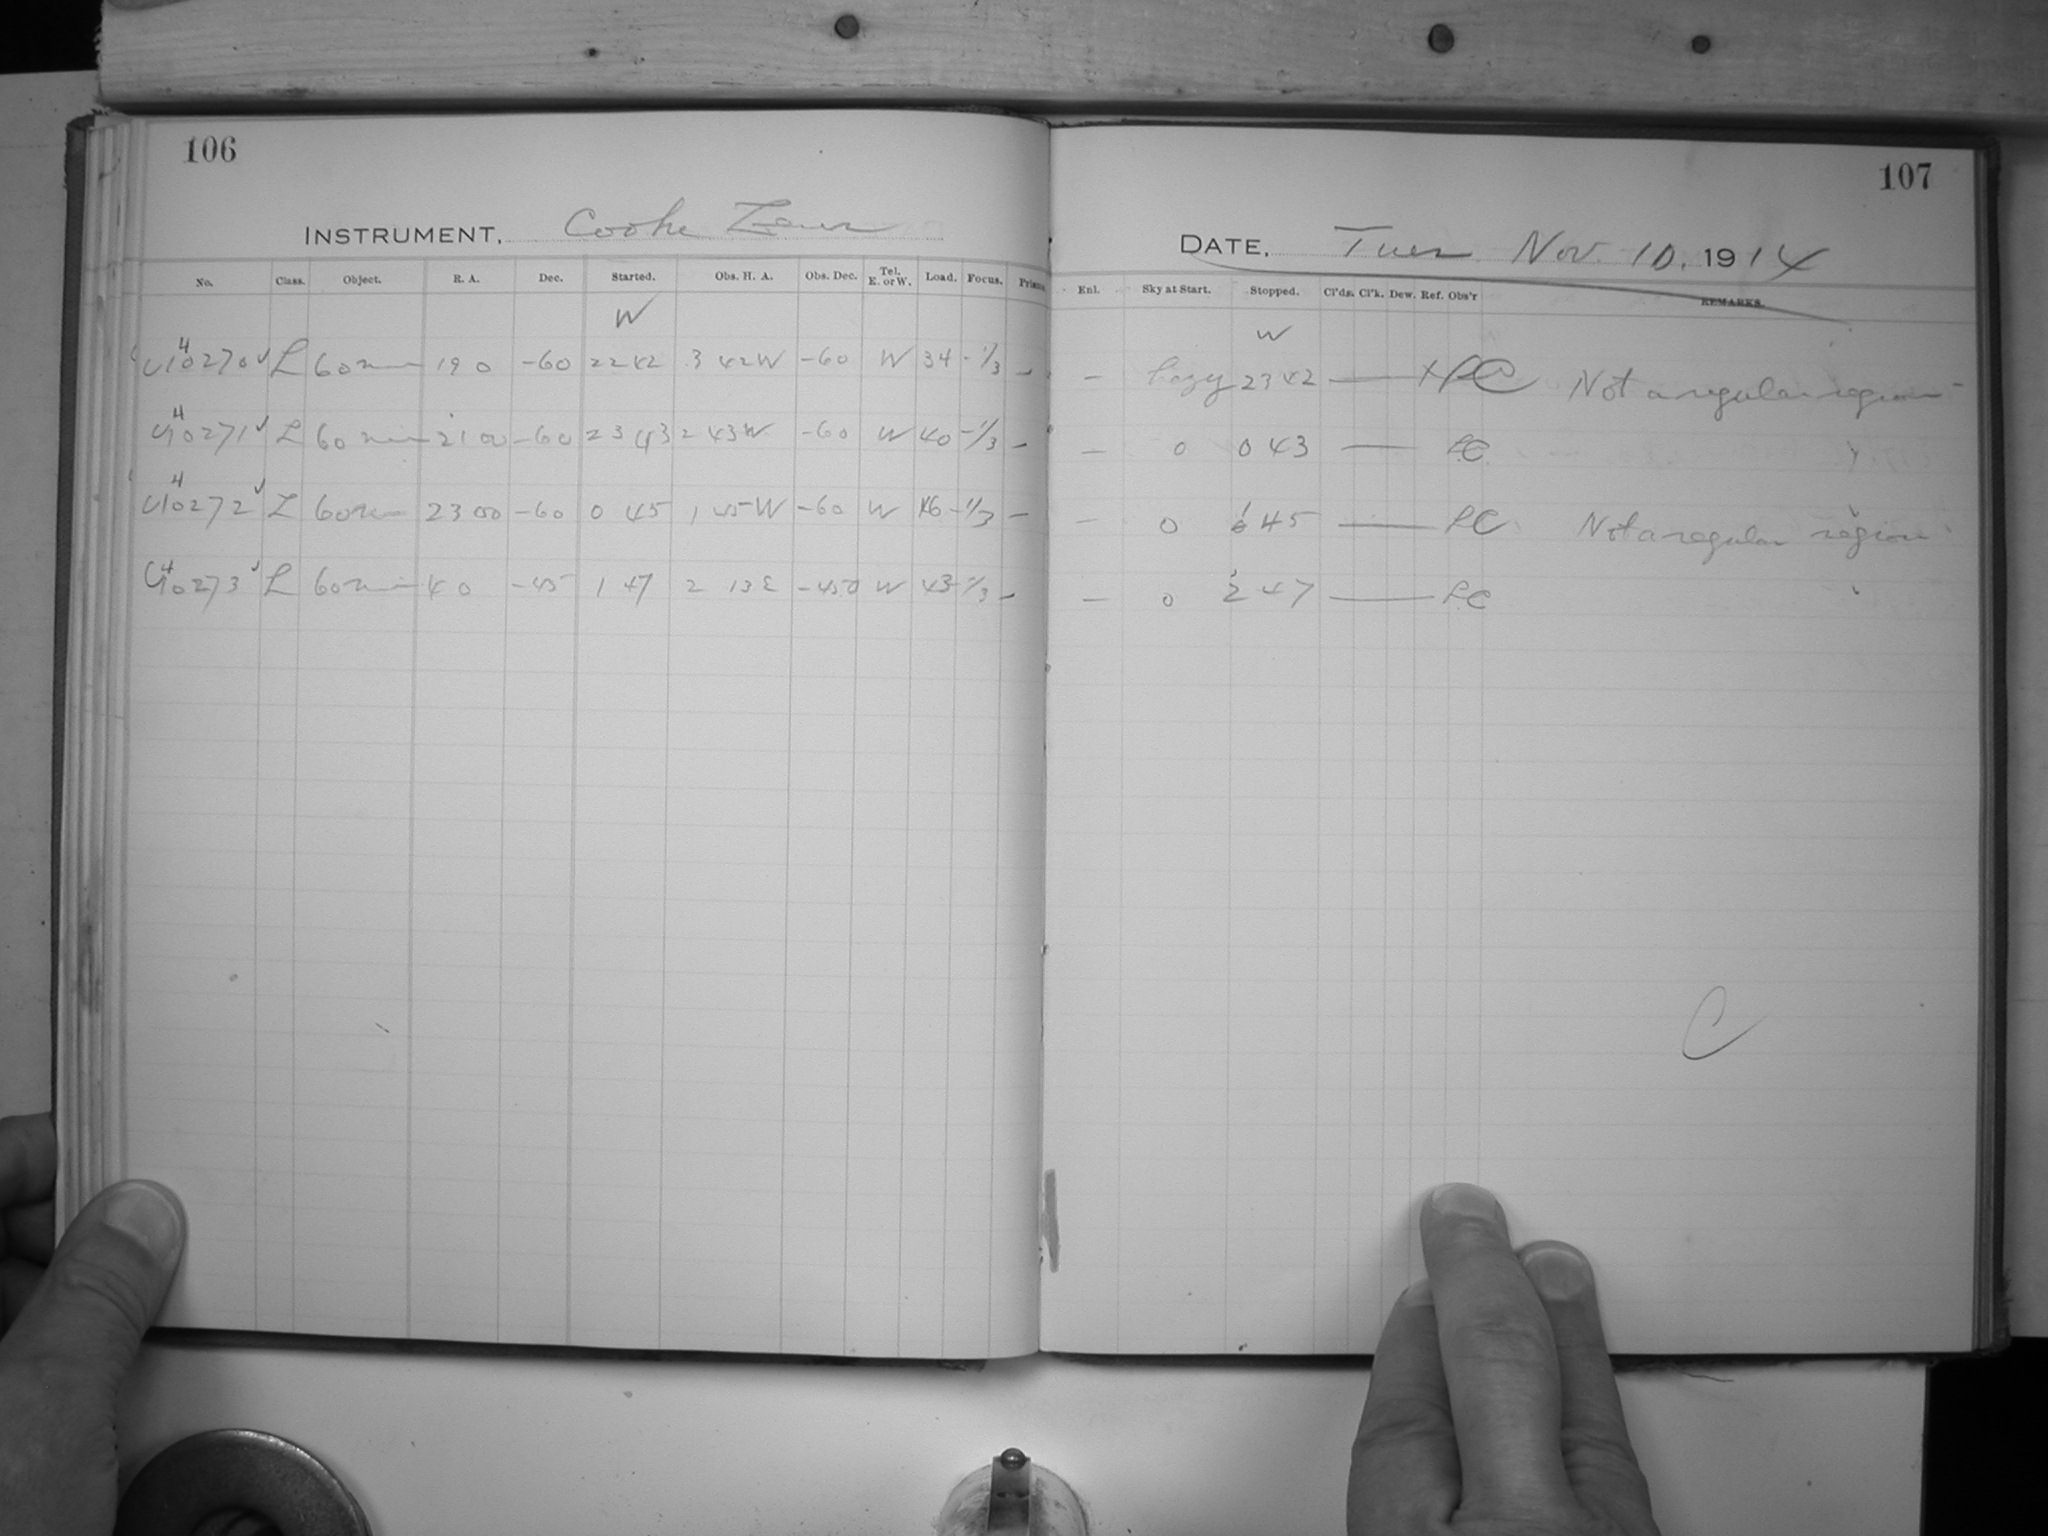 106
INSTRUMENT, Cooke Lens
No. Class. Object. R. A. Dec. Started. Obs. H. A. Obs. Dec. Tel. E. or W. Load. Focus. Prisms
W
4
10270 L 60 min 19 0 -60 22 42 3 42 W -60 W 34 -1/3 -
4
10271 L 60 min 21 00 -60 23 43 2 43 W -60 W 40 -1/3 -
4
10272 L 60 min 23 00 -60 0 45 1 45 W -60 W 46 -1/3 -
4
10273 L 60 min 4 0 -45 1 47 2 13 E -45 0 W 43 -1/3 -
107
DATE, Tues Nov. 10, 1914
Enl. Sky at Start. Stopped. Cl'ds. Cl'k. Dew. Ref. Obs'r REMARKS.
W
- hazy 23 42 — LC Not a regular region
- 0 0 43 — LC
- 0 1 45 — LC Not a regular region
- 0 2 47 — LC
C